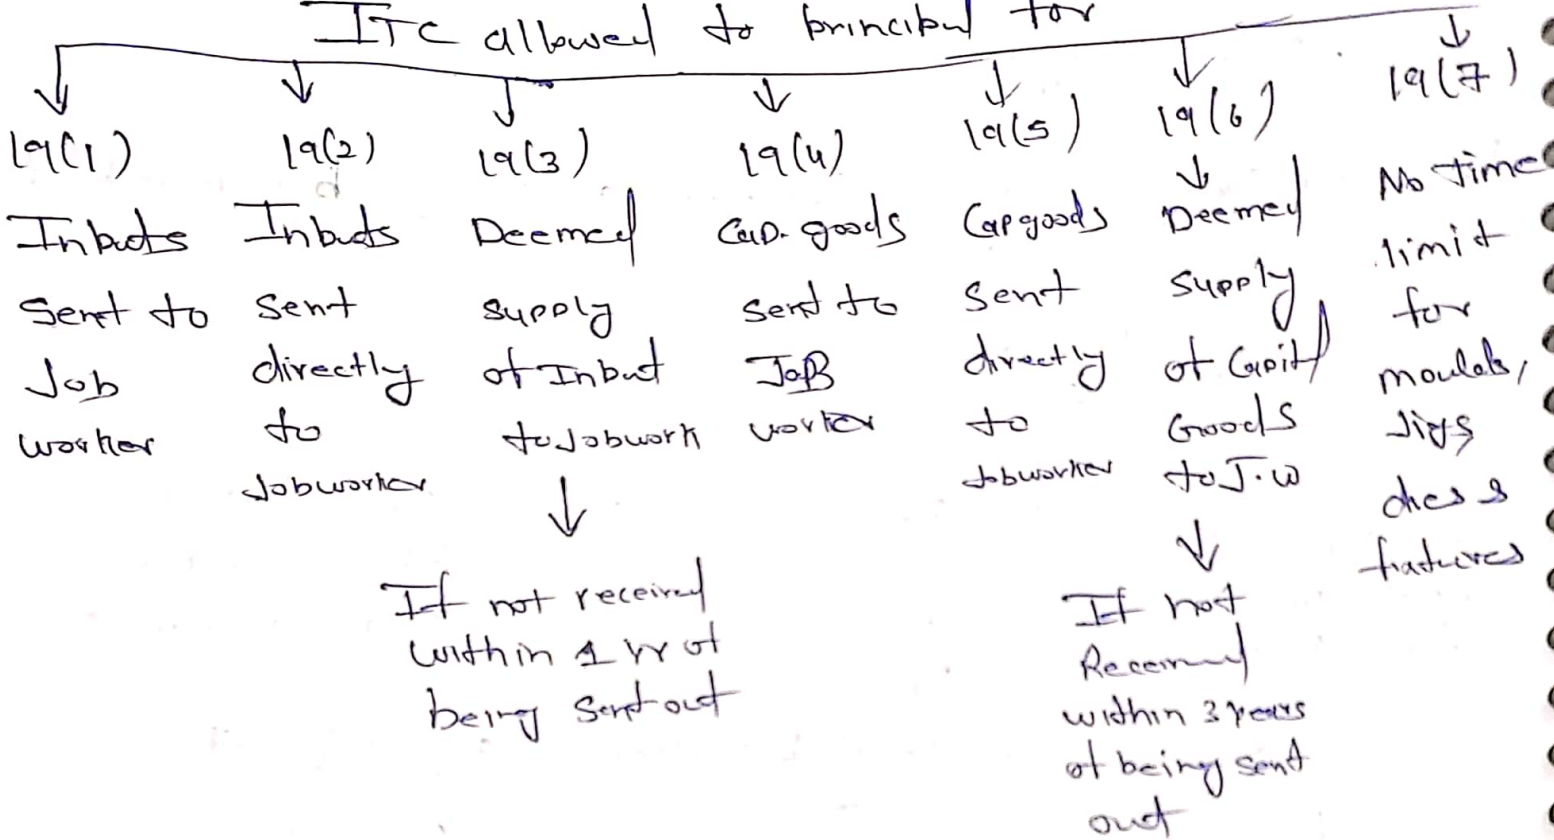 ITC allowed to principal for
19(1)
Inputs
Sent to
Job
worker
19(2)
Inputs
sent
directly
to
Jobworker
19(3)
Deemed
supply
of Input
to Jobwork
If not received
within 1 yr of
being sent out
19(4)
Cap. goods
sent to
Job
worker
19(5)
Cap goods
sent
directly
to
Jobworker
19(6)
Deemed
supply
of Capital
Goods
to J.W
If not
Received
within 3 years
of being sent
out
19(7)
No time
limit
for
moulds,
Jigs
dies &
fixtures